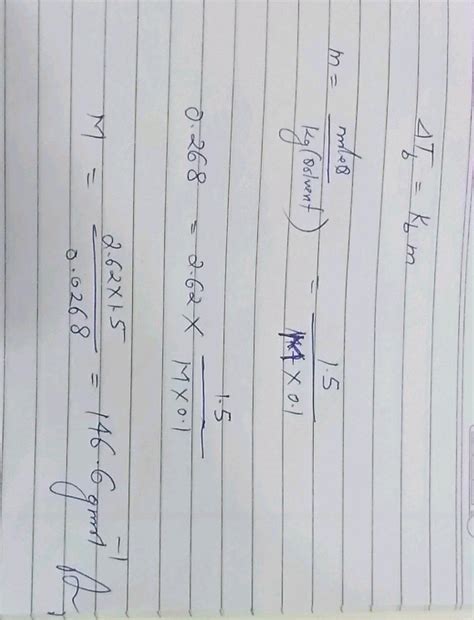 ΔT_b = K_b m
m = moles / kg(solvent) = 1.5 / M × 0.1
0.268 = 2.62 × 1.5 / M × 0.1
M = 2.62 × 1.5 / 0.0268 = 146.6 gmol⁻¹